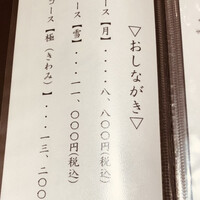 ▽おしながき▽
コース【月】・・・・・八、八〇〇円(税込)
コース【雪】・・・・一一、〇〇〇円(税込)
コース【極(きわみ)】・・・・一三、二〇〇